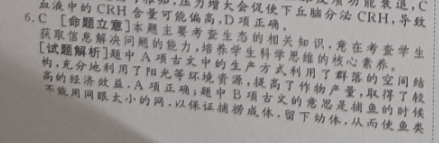 压力增大会促使下丘脑分泌 CRH,导致
血液中的 CRH 含量可能偏高,D 项正确。
6.C 【命题立意】本题主要考查生态的相关知识,意在考查学生
获取信息解决问题的能力,培养学生科学思维的核心素养。
【试题解析】题中 A 项古文中的生产方式利用了群落的空间结
构,充分地利用了阳光等环境资源,提高了作物产量,取得了较
高的经济效益,A 项正确;题中 B 项古文的意思是捕鱼的时候
不能用网眼太小的网,以保证捕捞成体,留下幼体,从而使鱼类